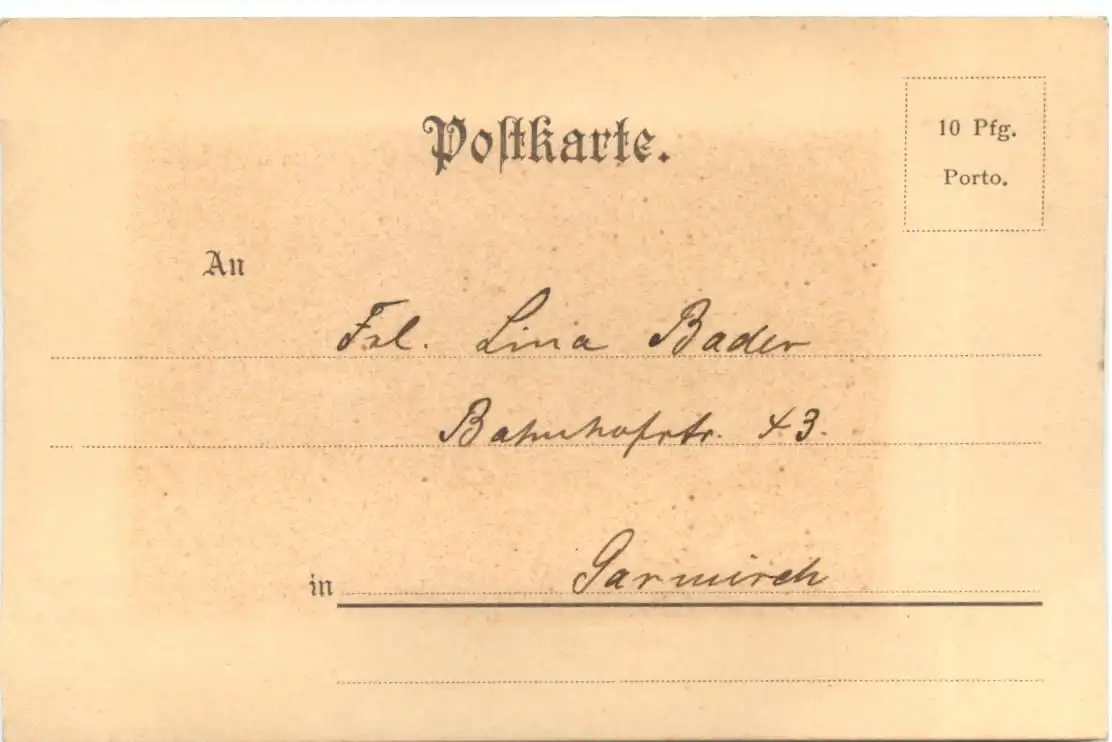 Postkarte.
10 Pfg.
Porto.
An
Frl. Lina Bader
Bahnhofstr. 43.
in Garmisch